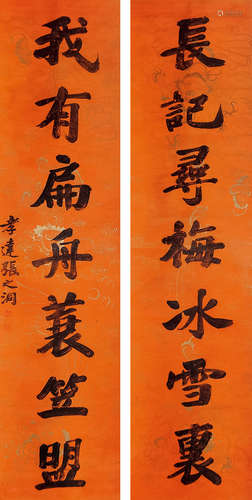 長記尋梅冰雪裏
我有扁舟蓑笠盟
孝達張之洞